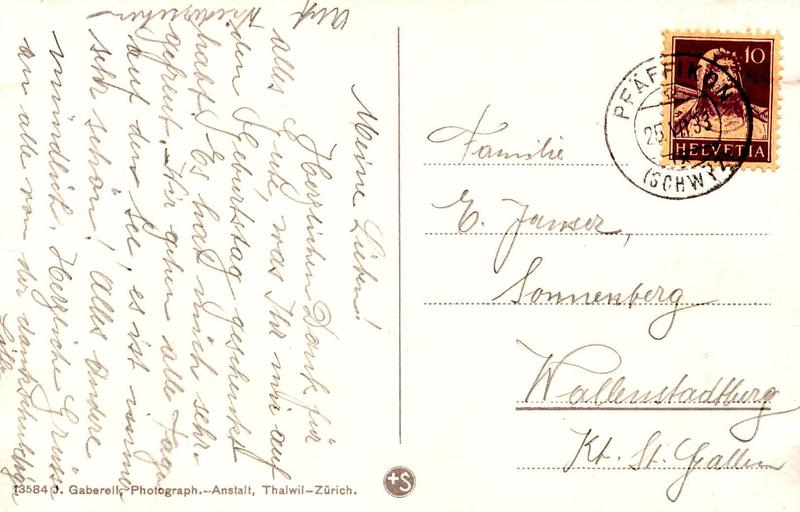 Auf
Meine Lieben!
Herzlichen Dank für
alles Gute, was Ihr mir auf
den Geburtstag geschenkt
habt. Es hat mich sehr
gefreut. Wir gehen alle Tage
auf den See, es ist immer
sehr schön! Alles andre
mündlich. Herzliche Grüsse
an alle von der dankschuldigen
13584 J. Gaberell, Photograph.-Anstalt, Thalwil-Zürich.
+S
10
HELVETIA
PFÄFFIKON
25.VII.33
(SCHWYZ)
Familie
E. Janser,
Sonnenberg
Wallenstadtberg
Kt. St. Gallen